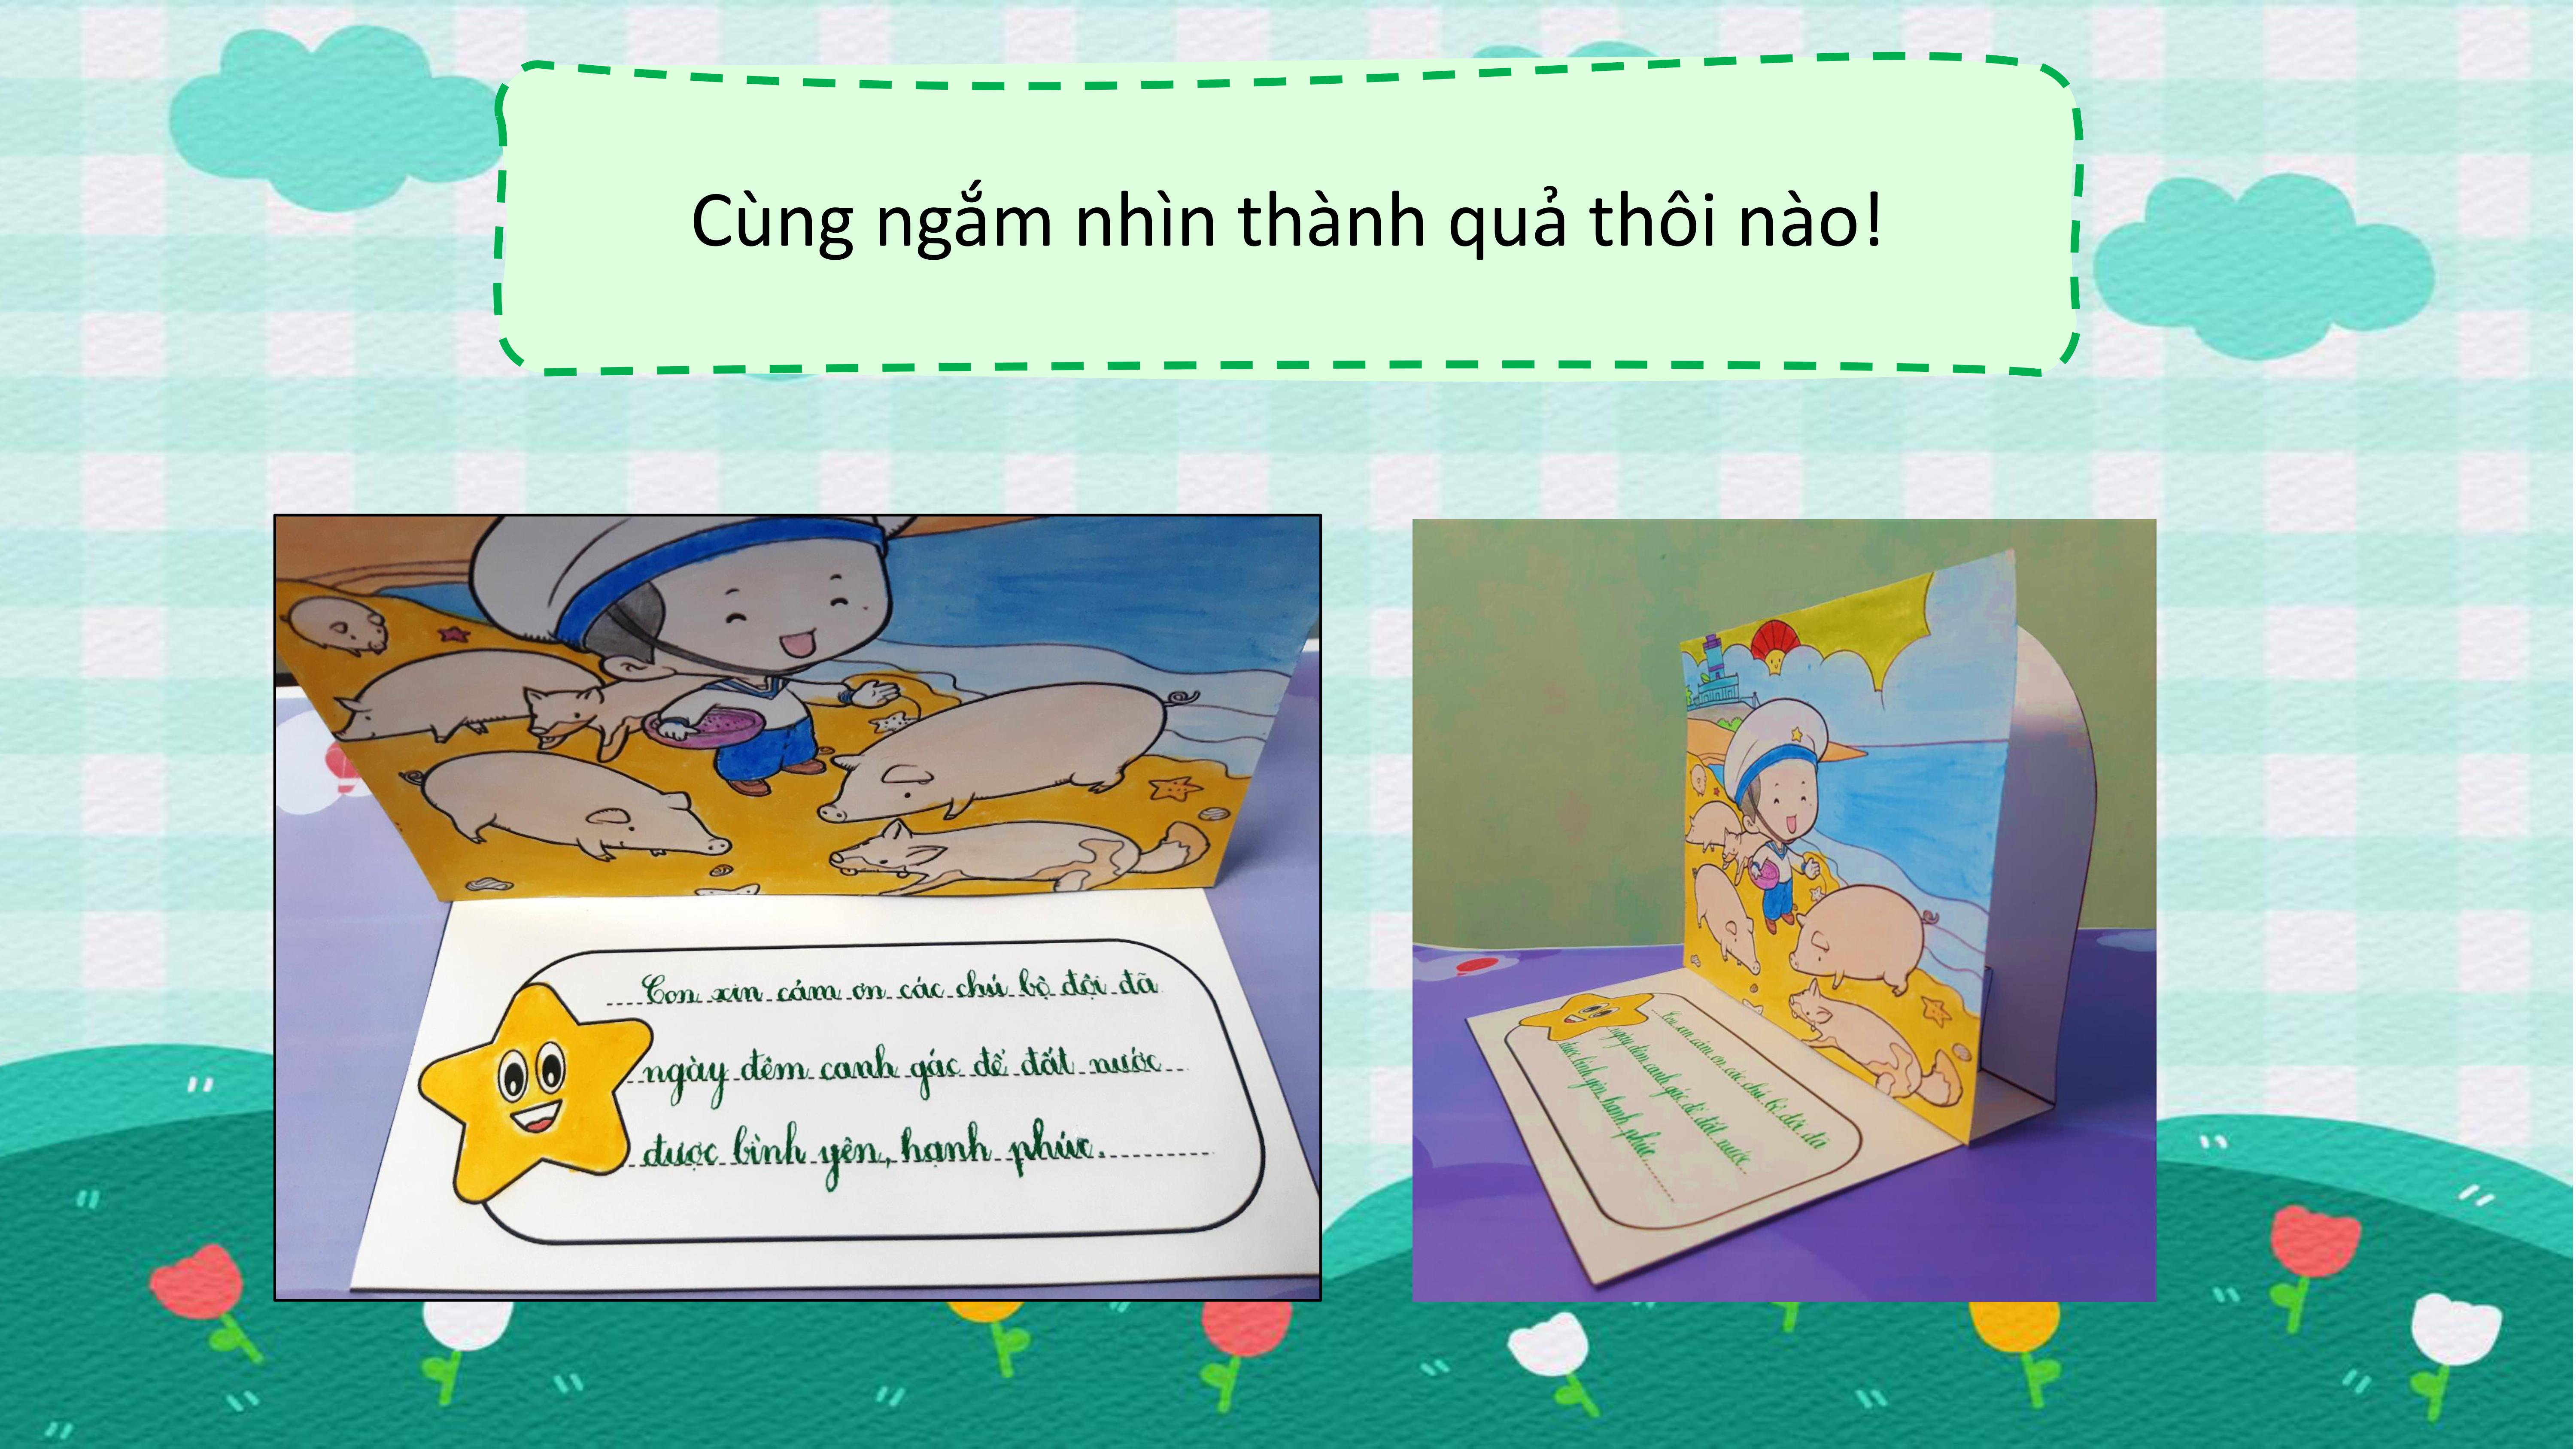 Cùng ngắm nhìn thành quả thôi nào!
Con xin cảm ơn các chú bộ đội đã
ngày đêm canh gác để đất nước
được bình yên, hạnh phúc.
Con xin cảm ơn các chú bộ đội đã
ngày đêm canh gác để đất nước
được bình yên, hạnh phúc.